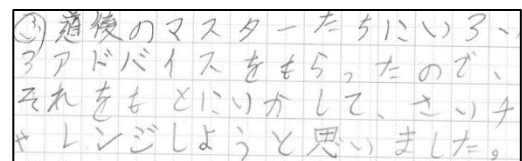 ㋛道後のマスターたちにいろい
ろアドバイスをもらったので、
それをもとにいかして、さいチ
ャレンジしようと思いました。